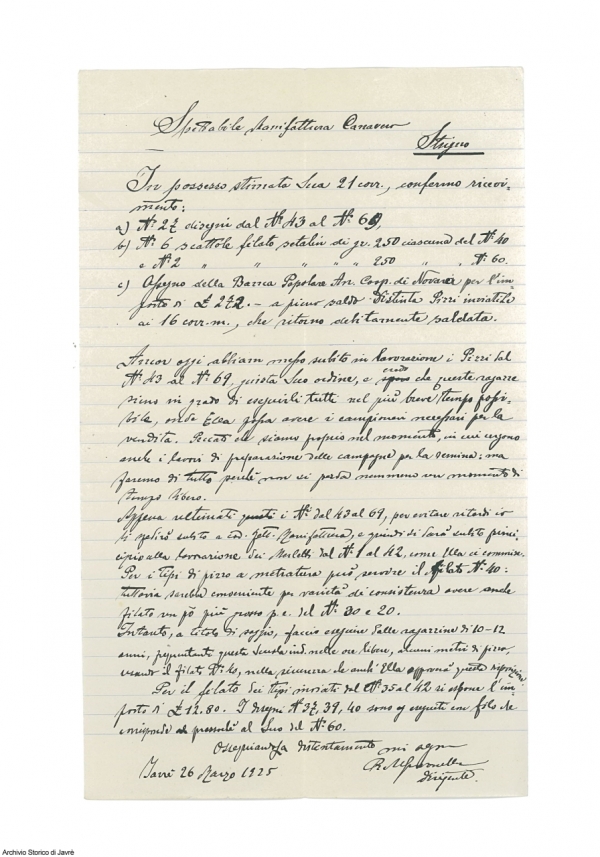 Spettabile Manifattura Canavero
Strigno
In possesso stimata Sua 21 corr., confermo ricevi-
mento:
a) N° 27 disegni dal N° 43 al N° 69,
b) N° 6 scattole filato setalin di gr. 250 ciascuna del N° 40
e N° 2 " " " " " 250 " " N° 60.
c) Assegno della Banca Popolare An. Coop. di Novara per l'im-
porto di £ 272. – a pieno saldo Distinta Pizzi inviatile
ai 16 corr. m., che ritorno debitamente saldata.
Ancor oggi abbiam messo subito in lavorazione i Pizzi dal
N° 43 al N° 69, giusta Suo ordine, e credo che queste ragazze
sieno in grado di eseguirli tutti nel più breve tempo possi-
bile, onde Ella possa avere i campionari necessari per la
vendita. Peccato che siamo proprio nel momento, in cui urgono
anche i lavori di preparazione delle campagne per la semina; ma
faremo di tutto perchè non si perda nemmeno un momento di
tempo libero.
Appena ultimati questi i N° dal 43 al 69, per evitare ritardi io
li spedirò subito a cod. Manifattura, e quindi si darà subito princi-
cipio alla lavorazione dei Merletti dal N° 1 al 42, come Ella ci commise.
Per i tipi di pizzo a metratura può servire il filato N° 40:
tuttavia sarebbe conveniente per varietà di consistenza avere anche
filato un pò più grosso p. e. del N° 30 e 20.
Intanto, a titolo di saggio, faccio eseguire dalle ragazzine di 10-12
anni, frequentanti questa Scuola ind. nelle ore libere, alcuni metri di pizzo,
usando il filato N° 40, nella sicurezza che anch'Ella approverà questa disposizione
Per il filato dei tipi inviati dal N° 35 al 42 si espone l'im-
porto di £ 12.80. I disegni N° 37, 39, 40 sono eseguiti con filo che
corrisponde al Suo del N° 60.
Ossequiandola distintamente mi segno
Javrè 26 Marzo 1925
Dirigente.
Archivio Storico di Javrè